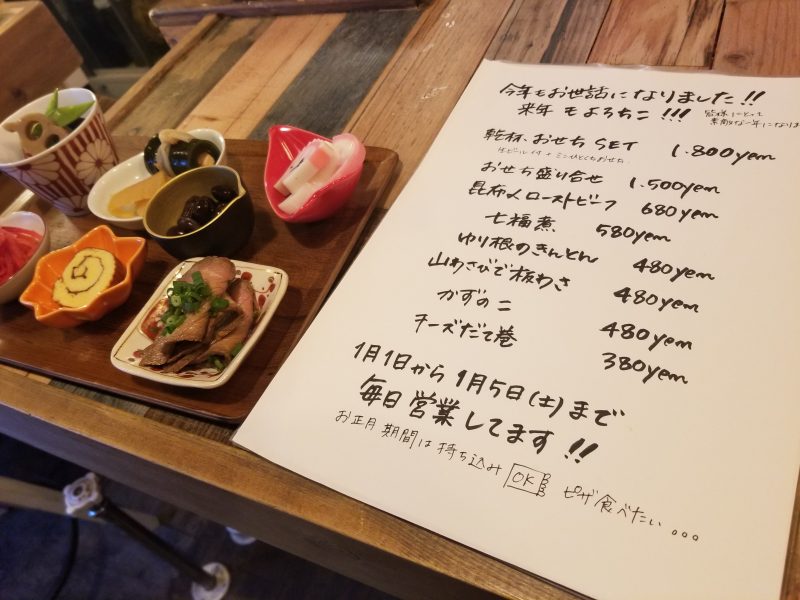 今年もお世話になりました!!
来年もよろちこ!!!
皆様にとって
素敵な一年になりま
乾杯、おせちSET 1.800yem
生ビール付+ミニひとくちおせち
おせち盛り合せ 1.500yem
昆布〆ローストビーフ 680yem
七福煮 580yem
ゆり根のきんとん 480yem
山わさびで板わさ 480yem
かずのこ 480yem
チーズだて巻 380yem
1月1日から1月5日(土)まで
毎日営業してます!!
お正月期間は持ち込みOK ピザ食べたい。。。